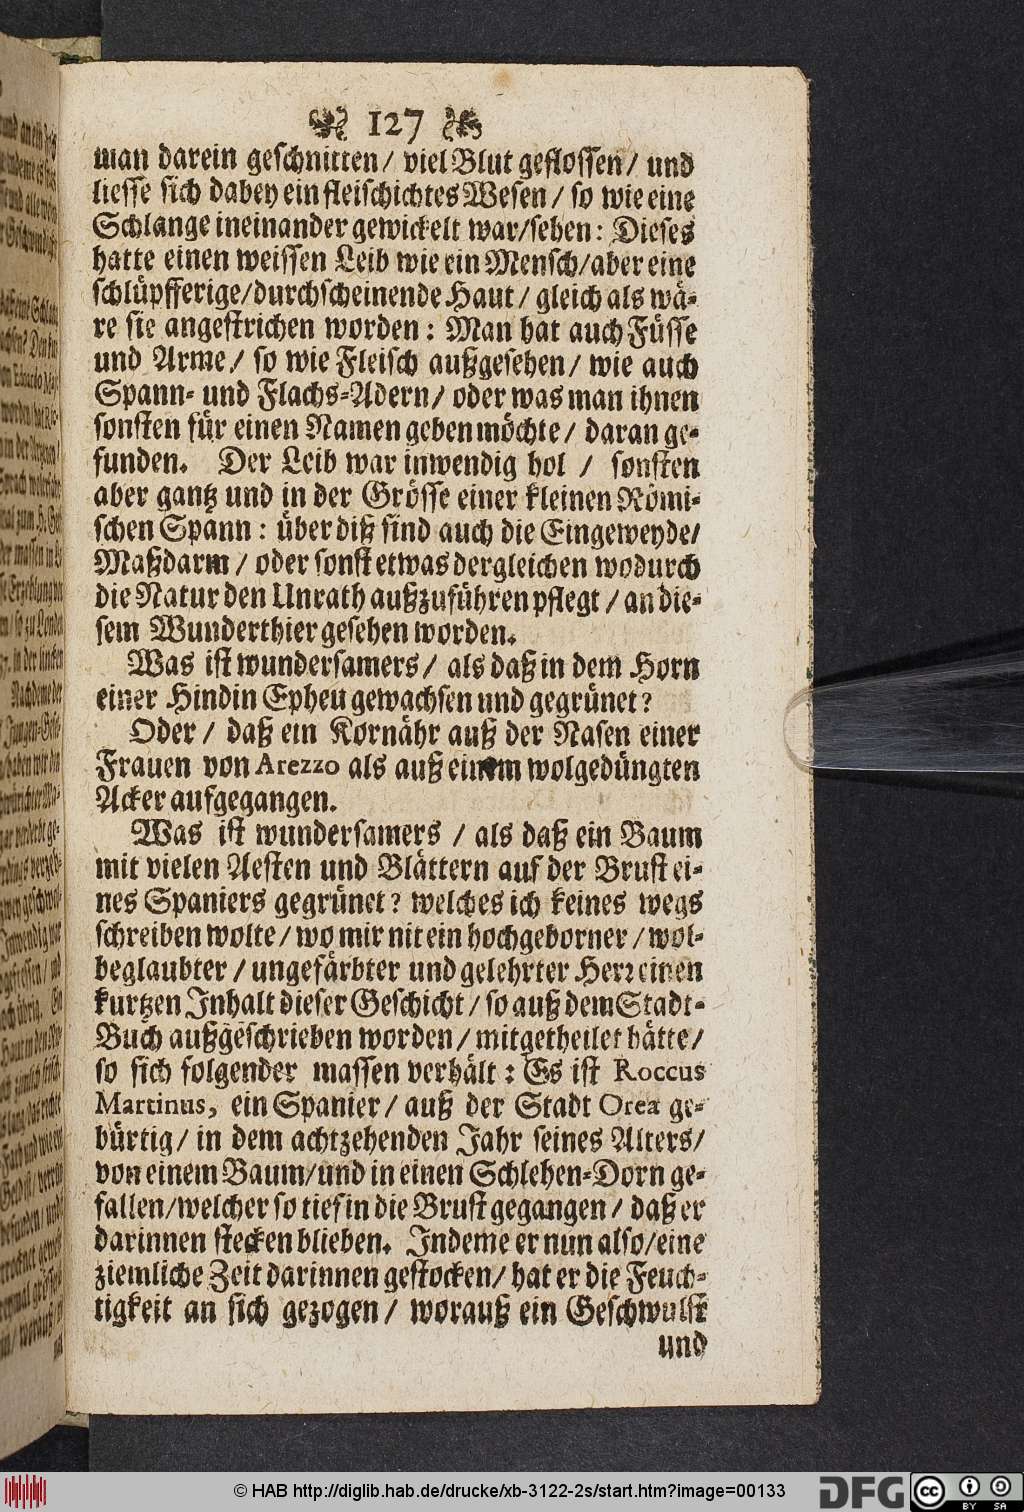 127
man darein geschnitten / viel Blut geflossen / und
liesse sich dabey ein fleischichtes Wesen / so wie eine
Schlange ineinander gewickelt war/sehen: Dieses
hatte einen weissen Leib wie ein Mensch/aber eine
schlüpfferige/durchscheinende Haut / gleich als wä-
re sie angestrichen worden: Man hat auch Füsse
und Arme / so wie Fleisch außgesehen / wie auch
Spann- und Flachs-Adern / oder was man ihnen
sonsten für einen Namen geben möchte / daran ge-
funden. Der Leib war inwendig hol / sonsten
aber gantz und in der Grösse einer kleinen Römi-
schen Spann: über diß sind auch die Eingeweyde/
Maßdarm / oder sonst etwas dergleichen wodurch
die Natur den Unrath außzuführen pflegt / an die-
sem Wunderthier gesehen worden.
Was ist wundersamers / als daß in dem Horn
einer Hindin Epheu gewachsen und gegrünet?
Oder / daß ein Kornähr auß der Nasen einer
Frauen von Arezzo als auß einem wolgedüngten
Acker aufgegangen.
Was ist wundersamers / als daß ein Baum
mit vielen Aesten und Blättern auf der Brust ei-
nes Spaniers gegrünet? welches ich keines wegs
schreiben wolte / wo mir nit ein hochgeborner / wol-
beglaubter / ungefärbter und gelehrter Herr einen
kurtzen Inhalt dieser Geschicht / so auß dem Stadt-
Buch außgeschrieben worden / mitgetheilet hätte /
so sich folgender massen verhält: Es ist Roccus
Martinus, ein Spanier / auß der Stadt Orea ge-
bürtig / in dem achtzehenden Jahr seines Alters /
von einem Baum/und in einen Schlehen-Dorn ge-
fallen/welcher so tief in die Brust gegangen / daß er
darinnen stecken blieben. Indeme er nun also/eine
ziemliche Zeit darinnen gestocken / hat er die Feuch-
tigkeit an sich gezogen / worauß ein Geschwulst
und
© HAB http://diglib.hab.de/drucke/xb-3122-2s/start.htm?image=00133
DFG
cc
BY SA